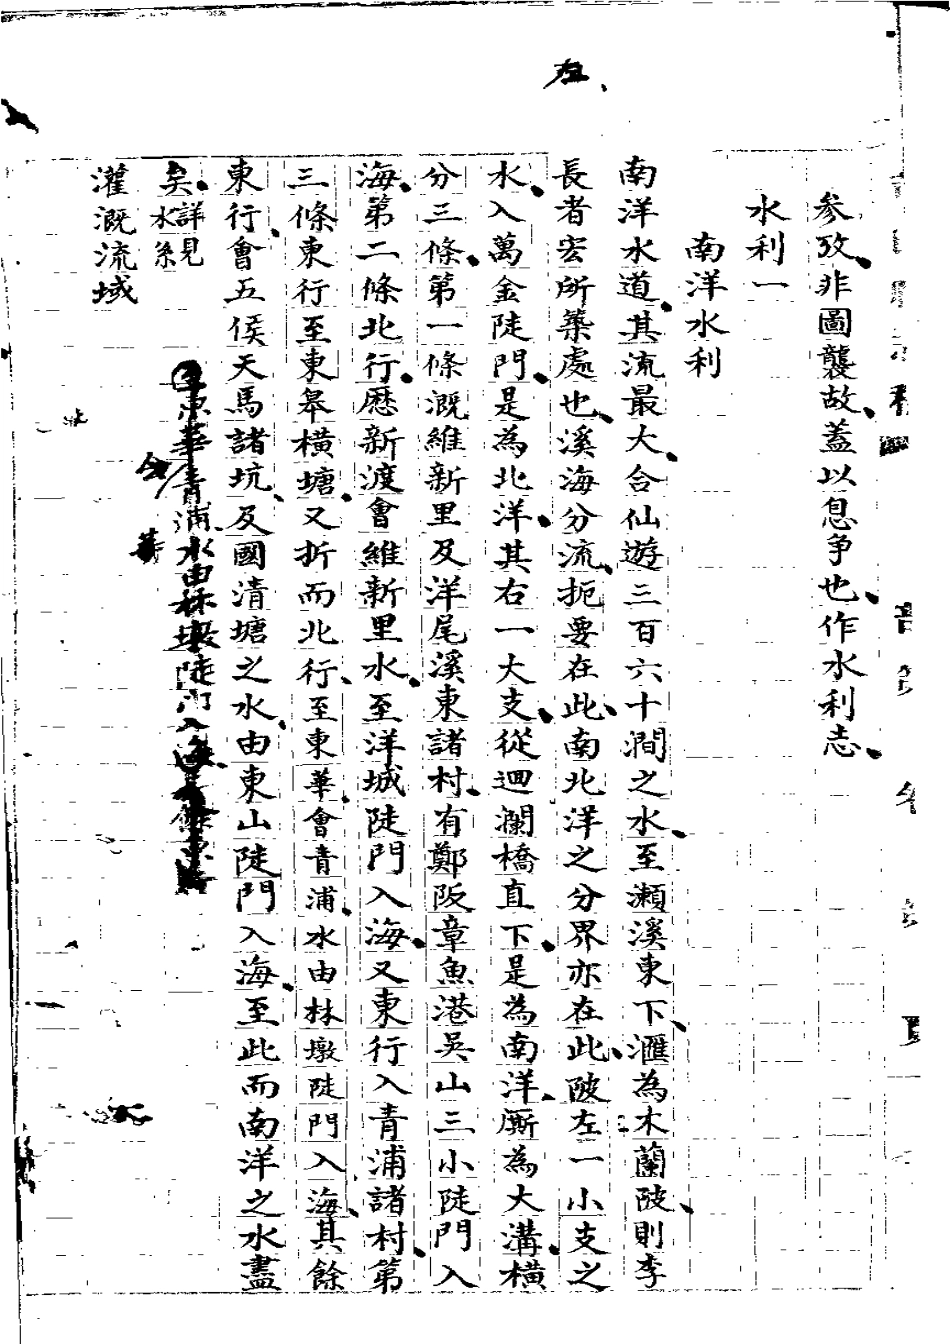 左
参攷、非圖襲故、蓋以息争也、作水利志、
水利一
南洋水利
南洋水道、其流最大、合仙遊三百六十澗之水、至瀨溪東下、滙為木蘭陂、則李
長者宏所築處也、溪海分流、扼要在此、南北洋之分界亦在此、陂左一小支之
水、入萬金陡門、是為北洋、其右一大支、從迴瀾橋直下、是為南洋、厮為大溝、横
分三條、第一條溉維新里及洋尾溪東諸村、有鄭阪章魚港吳山三小陡門入
海、第二條北行、歴新渡會維新里水、至洋城陡門入海、又東行入青浦諸村、第
三條東行至東皋横塘、又折而北行、至東華會青浦、水由林墩陡門入海、其餘
東行、會五侯天馬諸坑、及國清塘之水、由東山陡門入海、至此而南洋之水盡
矣、詳見水系
灌溉流域